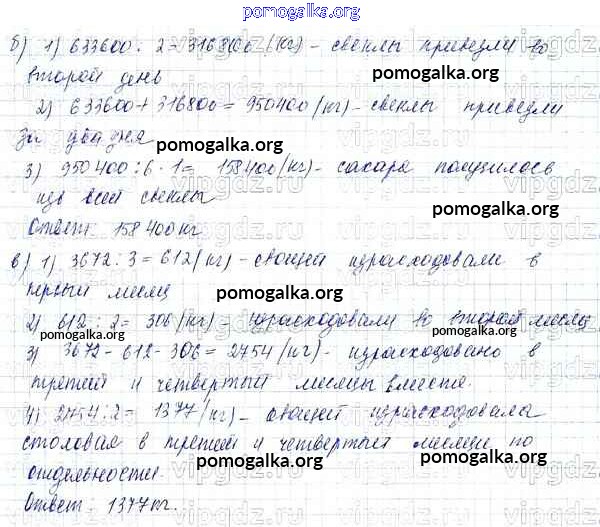 pomogalka.org
б) 1) 633600 : 2 = 316800 (кг) - свеклы привезли во
второй день
pomogalka.org
2) 633600 + 316800 = 950400 (кг) - свеклы привезли
за два дня
pomogalka.org
3) 950400 : 6 · 1 = 158400 (кг) - сахара получилось
из всей свеклы
pomogalka.org
Ответ: 158400 кг
в) 1) 3672 : 3 = 612 (кг) - овощей израсходовали в
первый месяц
pomogalka.org
2) 612 : 2 = 306 (кг) - израсходовали во второй месяц
pomogalka.org
3) 3672 - 612 - 306 = 2754 (кг) - израсходовано в
третий и четвертый месяцы вместе.
pomogalka.org
4) 2754 : 2 = 1377 (кг) - овощей израсходовала
столовая в третий и четвертый месяцы по
отдельности.
pomogalka.org
Ответ: 1377 кг.